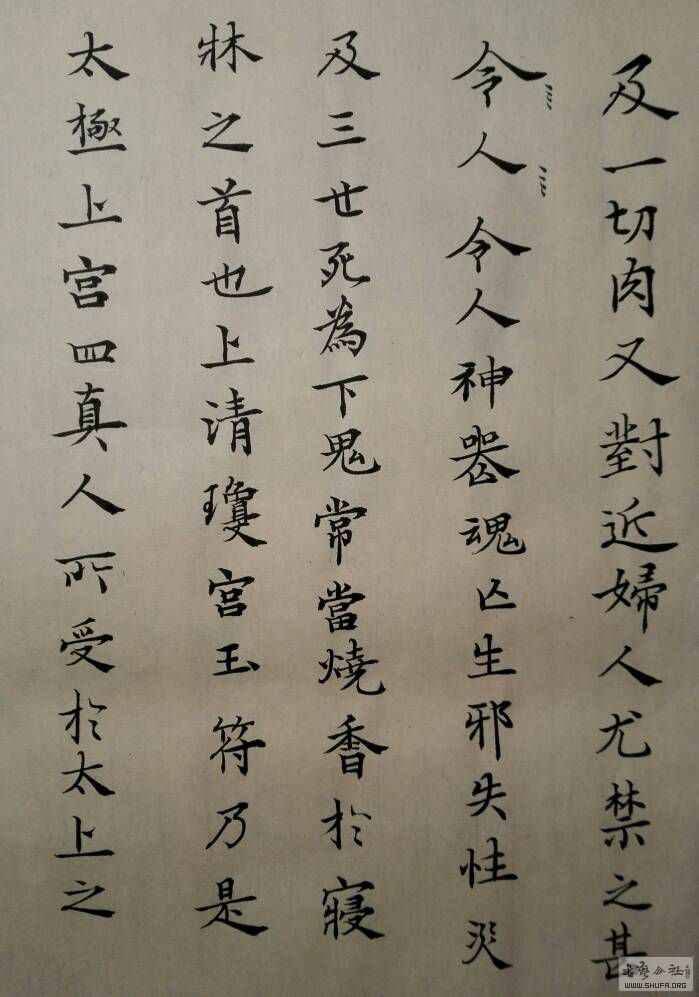 及一切肉又對近婦人尤禁之甚
令人令人神喪魂亡生邪失性災
及三世死為下鬼常當燒香於寢
牀之首也上清瓊宮玉符乃是
太極上宮四真人所受於太上之
WWW.SHUFA.ORG